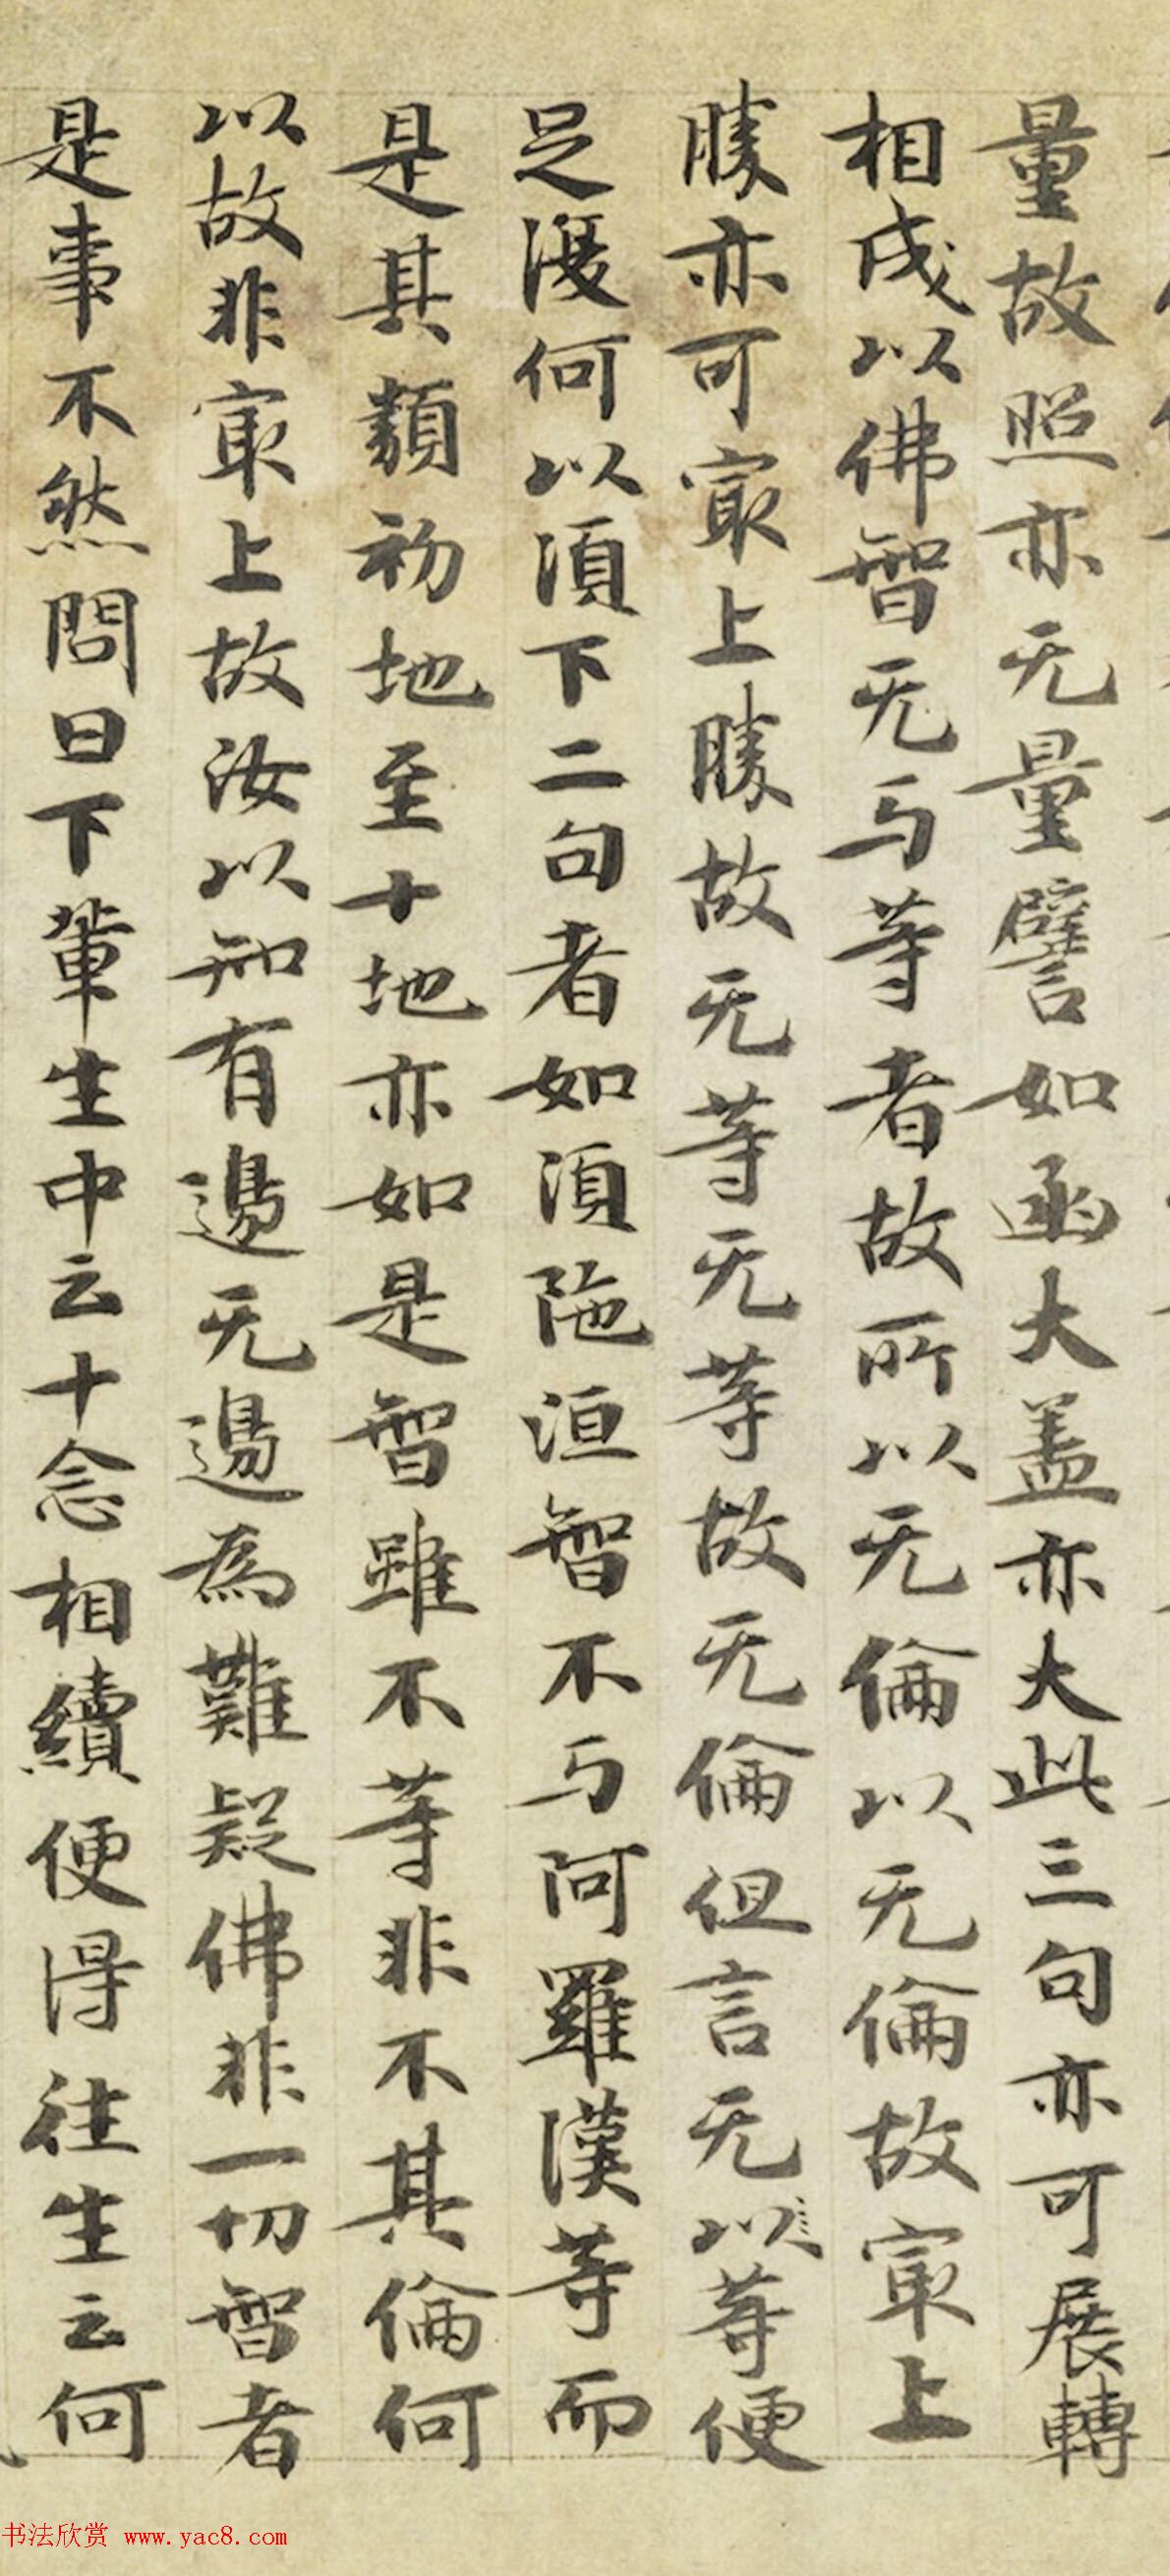 量故照亦无量譬如函大盖亦大此三句亦可展轉
相成以佛智无与等者故所以无倫以无倫故㝡上
勝亦可㝡上勝故无等无等故无倫但言无以等便
足復何以湏下二句者如湏陁洹智不与阿羅漢等而
是其類初地至十地亦如是智雖不等非不其倫何
以故非㝡上故汝以知有邊无邊為難疑佛非一切智者
是事不然問曰下軰生中云十念相續便得往生云何
书法欣赏 www.yac8.com